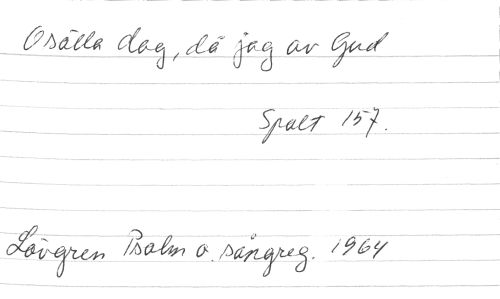 Osälla dag, då jag av Gud
Spalt 157.
Lövgren Psalm o. sångreg. 1964